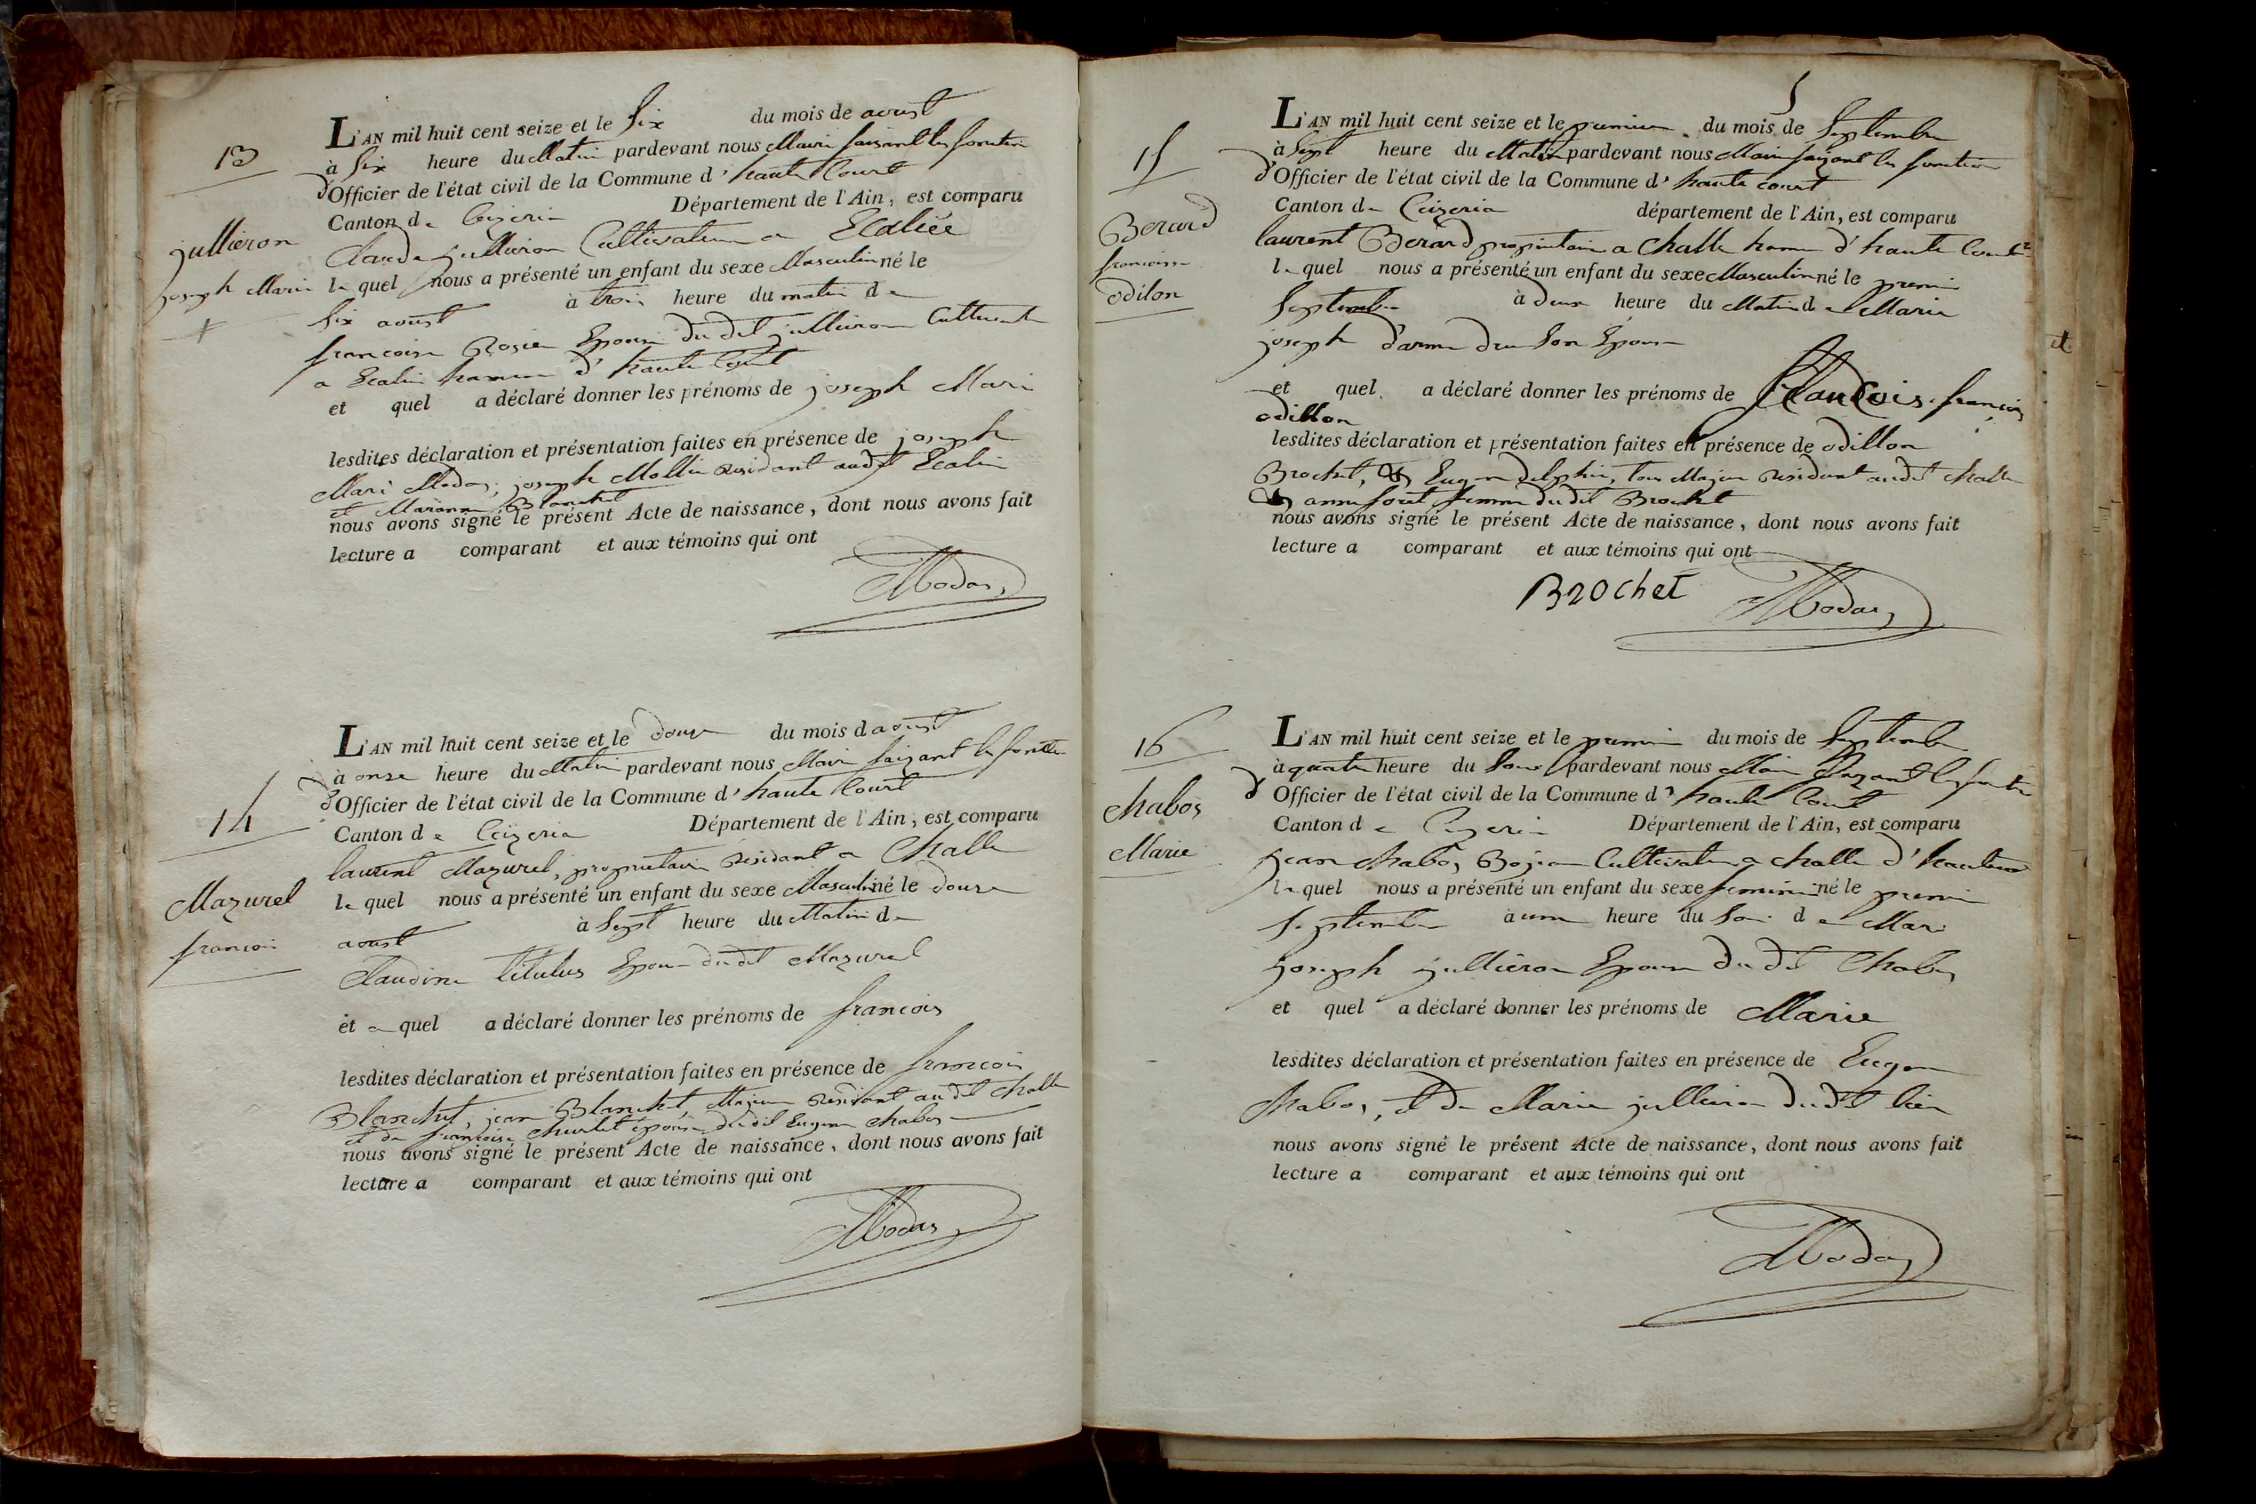 13
jullieron
joseph Marie
L'AN mil huit cent seize et le Six du mois de aoust
à Six heure du Matin pardevant nous Maire faisant les fonction
d'Officier de l'état civil de la Commune d'haute Court
Canton de Ceizeria Département de l'Ain, est comparu
Claude jullieron Cultivateur a
le quel nous a présenté un enfant du sexe Masculin né le
Six aoust à trois heure du matin de
francoise Rosier Epouse du dit jullieron Cultivateur
a hameau d'haute Court
et quel a déclaré donner les prénoms de joseph Marie
lesdites déclaration et présentation faites en présence de joseph
Marie Modas, joseph Mollie residant audit
et Blanchet
nous avons signé le présent Acte de naissance, dont nous avons fait
lecture a comparant et aux témoins qui ont
Modas
14
Mazurel
francois
L'AN mil huit cent seize et le douze du mois d aoust
à onze heure du Matin pardevant nous Maire faizant les fonction
d'Officier de l'état civil de la Commune d'haute Court
Canton de Ceizeria Département de l'Ain, est comparu
laurent Mazurel, proprietaire residant a Challe
le quel nous a présenté un enfant du sexe Masculin né le douze
aoust à Sept heure du Matin de
Claudine titulus Epouse dudit Mazurel
et quel a déclaré donner les prénoms de francois
lesdites déclaration et présentation faites en présence de francois
Blanchet, jean Blanchet, Majeur residant audit Challe
et de francoise épouse dudit Eugene Chabos
nous avons signé le présent Acte de naissance, dont nous avons fait
lecture a comparant et aux témoins qui ont
Modas
5
15
Berard
francois
odilon
L'AN mil huit cent seize et le premier du mois de Septembre
à Sept heure du Matin pardevant nous Maire faizant les fonction
d'Officier de l'état civil de la Commune d'haute court
Canton de Ceizeria département de l'Ain, est comparu
laurent Berard proprietaire a Challe hameau d'haute Court
le quel nous a présenté un enfant du sexe Masculin né le premier
Septembre à deux heure du Matin de Marie
joseph Son Epouse
et quel a déclaré donner les prénoms de francois
odillon
lesdites déclaration et présentation faites en présence de odillon
Brochet, Eugene delphin, tous Majeur residant audit Challe
anne femme dudit Brochet
nous avons signé le présent Acte de naissance, dont nous avons fait
lecture a comparant et aux témoins qui ont
Brochet Modas
16
Chabos
Marie
L'AN mil huit cent seize et le premier du mois de Septembre
à quatre heure du Soir pardevant nous Maire faizant les fonction
d'Officier de l'état civil de la Commune d'haute Court
Canton de Ceizeria Département de l'Ain, est comparu
jean Chabos Cultivateur a Challe d'
le quel nous a présenté un enfant du sexe feminin né le premier
Septembre à une heure du Soir de Marie
joseph jullieron Epouse du dit Chabos
et quel a déclaré donner les prénoms de Marie
lesdites déclaration et présentation faites en présence de Eugene
Chabos, et de Marie jullieron dudit lieu
nous avons signé le présent Acte de naissance, dont nous avons fait
lecture a comparant et aux témoins qui ont
Modas